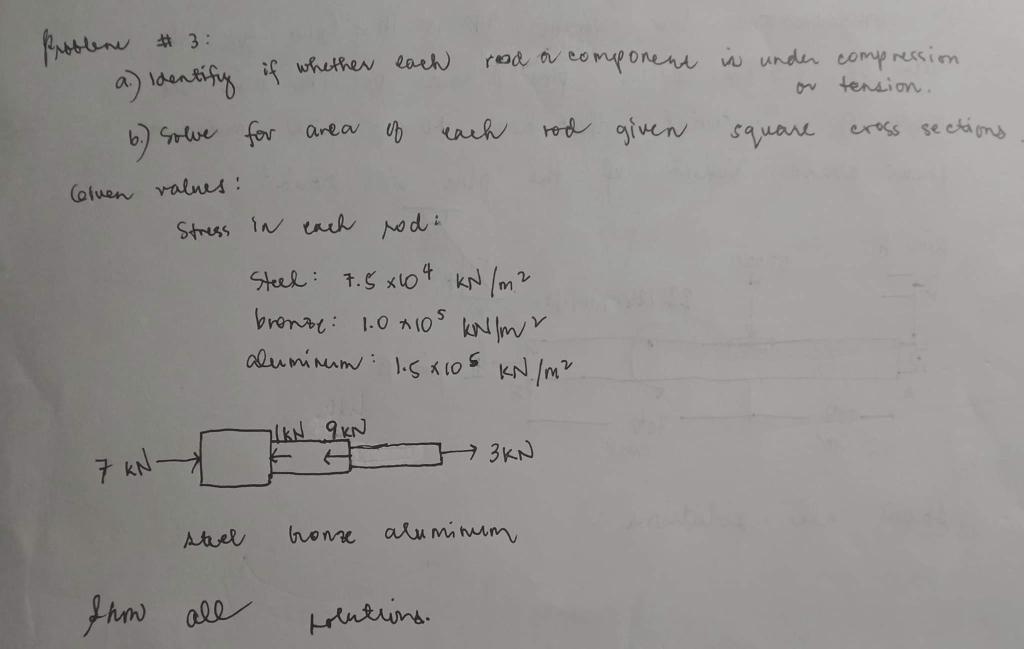 Problem # 3:
a.) Identify if whether each rod or component is under compression
or tension.
b.) Solve for area of each rod given square cross sections.
Given values:
Stress in each rod:
Steel: 7.5 x10⁴ KN/m²
bronze: 1.0 x10⁵ KN/m²
aluminum: 1.5 x10⁵ KN/m²
1KN 9KN
7 KN 3KN
steel bronze aluminum
Show all solutions.